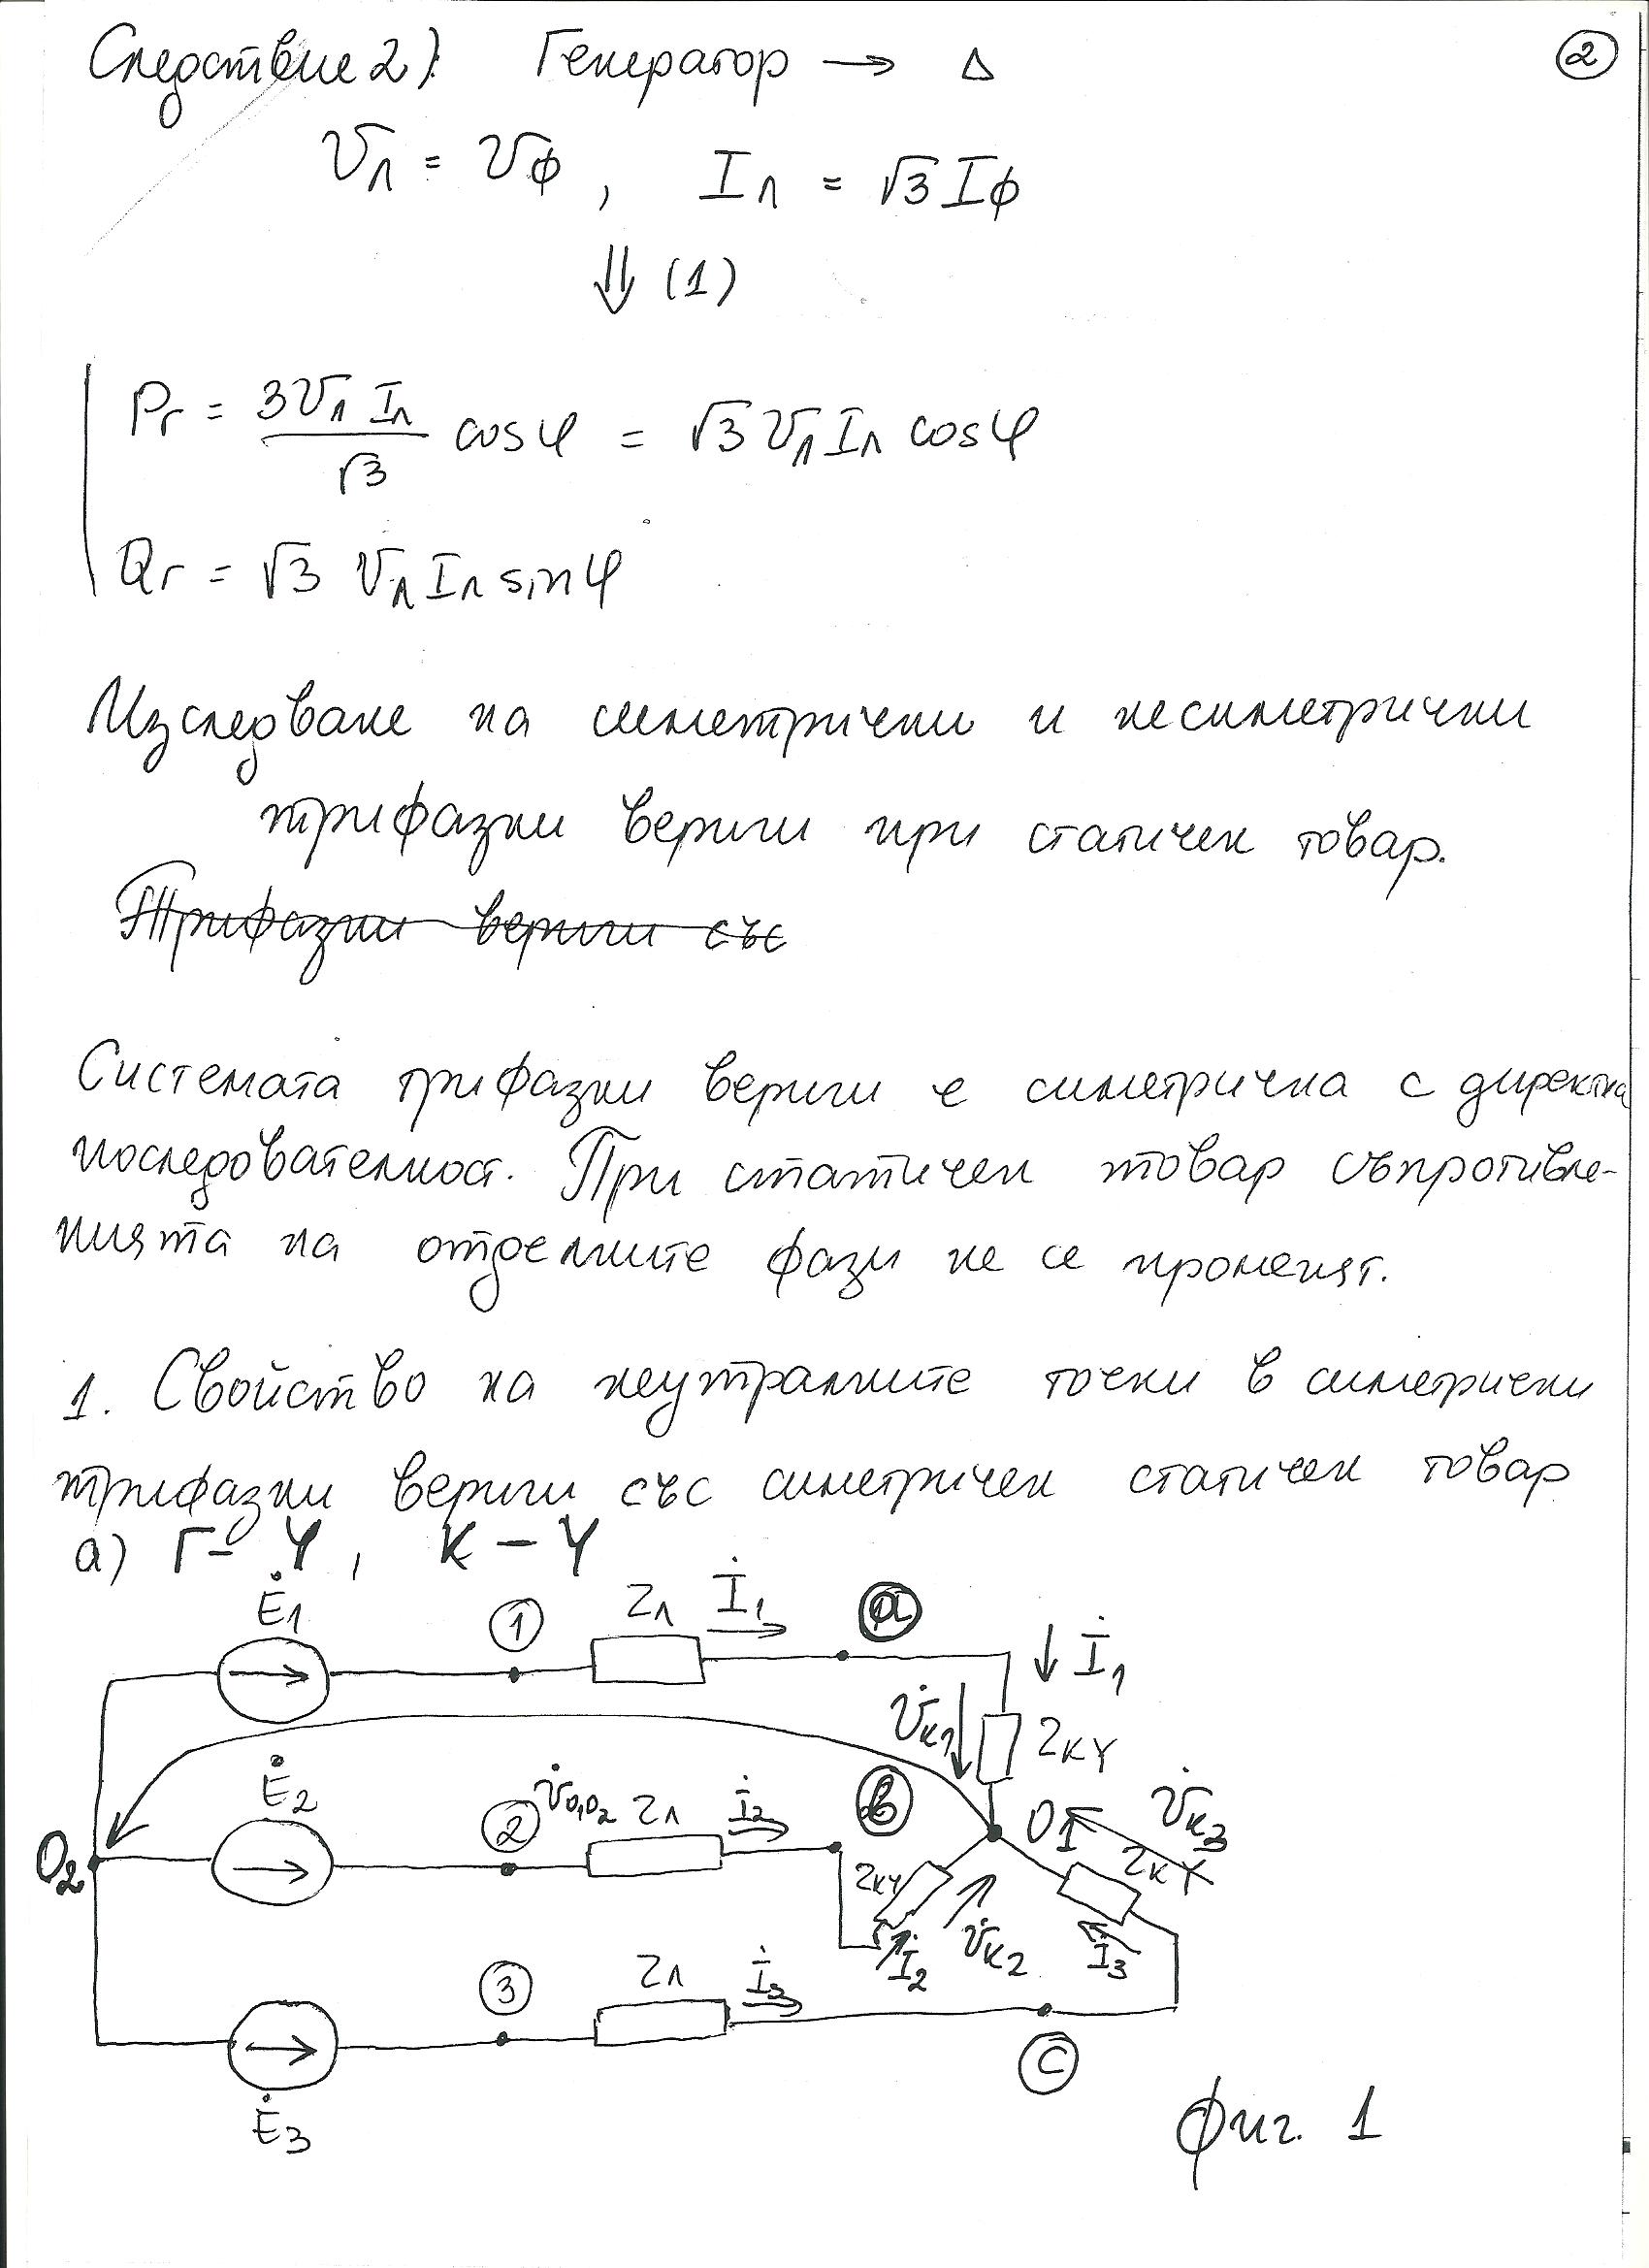 Следствие 2): Генератор → Δ
②
Uл = Uф , Iл = √3 Iф
⇓ (1)
Pг = 3Uл Iл / √3 cosφ = √3 Uл Iл cosφ
Qг = √3 Uл Iл sinφ
Изследване на симетрични и несиметрични
трифазни вериги при статичен товар.
Трифазни вериги със
Системата трифазни вериги е симетрична с директна
последователност. При статичен товар съпротивле-
нията на отделните фази не се променят.
1. Свойство на неутралните точки в симетрични
трифазни вериги със симетричен статичен товар
а) Г - Y , К - Y
Ė1 ① Zл İ1 ⓐ İ1
U̇к1 ZкY
Ė2 ② U̇0102 Zл İ2 ⓑ 01 U̇к3
02 ZкY ZкY
İ2 U̇к2 İ3
③ Zл İ3
Ė3 ⓒ
Фиг. 1